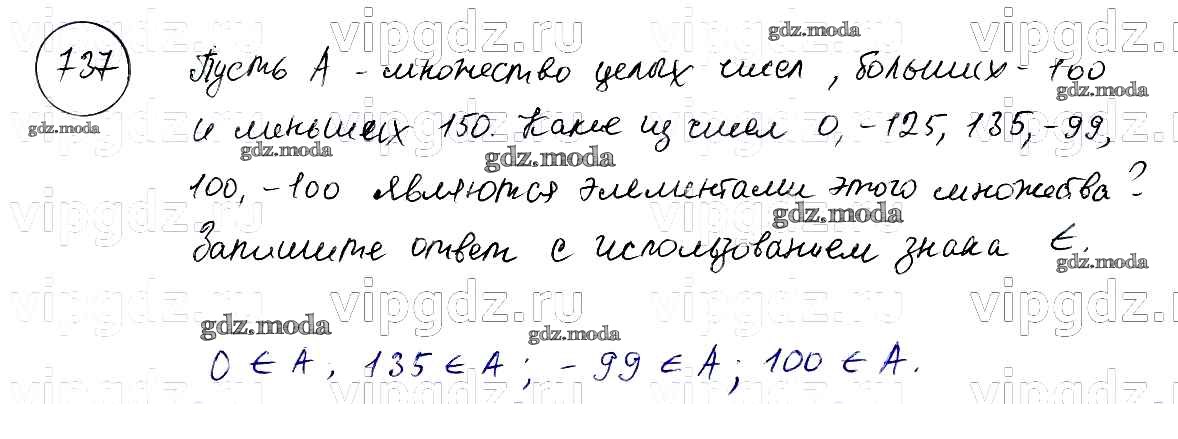 vipgdz.ru vipgdz.ru vipgdz.ru vipgdz.ru
gdz.moda
737 Пусть А - множество целых чисел, больших -100
gdz.moda gdz.moda
и меньших 150. Какие из чисел 0, -125, 135, -99,
gdz.moda gdz.moda
100, -100 являются элементами этого множества?
vipgdz.ru vipgdz.ru vipgdz.ru vipgdz.ru
gdz.moda
Запишите ответ с использованием знака ∈.
gdz.moda
vipgdz.ru vipgdz.ru vipgdz.ru vipgdz.ru
gdz.moda gdz.moda
0 ∈ A, 135 ∈ A; -99 ∈ A; 100 ∈ A.
vipgdz.ru vipgdz.ru vipgdz.ru vipgdz.ru